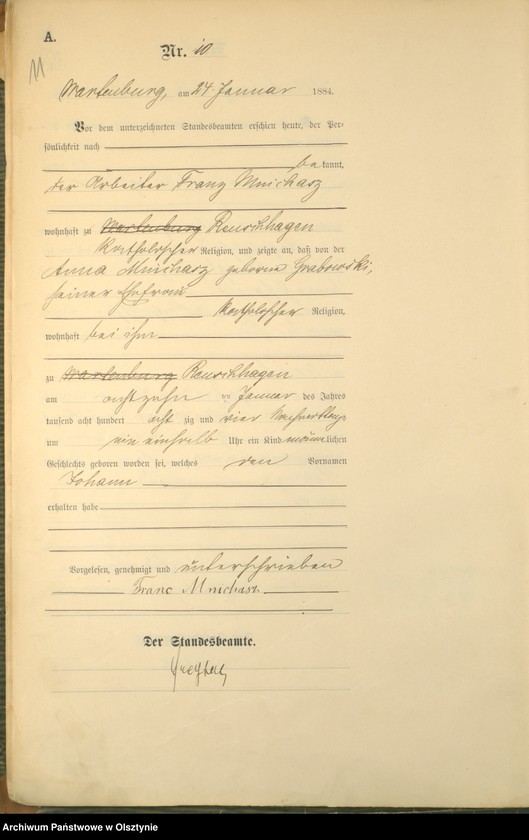 A.
Nr. 10
11
Wartenburg, am 24 Januar 1884.
Vor dem unterzeichneten Standesbeamten erschien heute, der Per-
sönlichkeit nach
be kannt,
der Arbeiter Franz Mnichasz
wohnhaft zu Wartenburg Reuschhagen
katholischer Religion, und zeigte an, daß von der
Anna Mnichasz geborene Grabowski,
seiner Ehefrau
katholischer Religion,
wohnhaft bei ihm
zu Wartenburg Reuschhagen
am achtzehn ten Januar des Jahres
tausend acht hundert acht zig und vier Nachmittags
um ein einhalb Uhr ein Kind männlichen
Geschlechts geboren worden sei, welches den Vornamen
Johann
erhalten habe
Vorgelesen, genehmigt und unterschrieben
Franc Mnichasz
Der Standesbeamte.
Archiwum Państwowe w Olsztynie